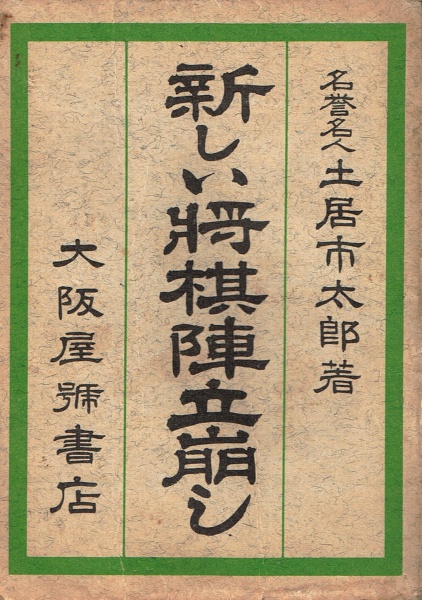 名誉名人土居市太郎著
新しい将棋陣立崩し
大阪屋號書店